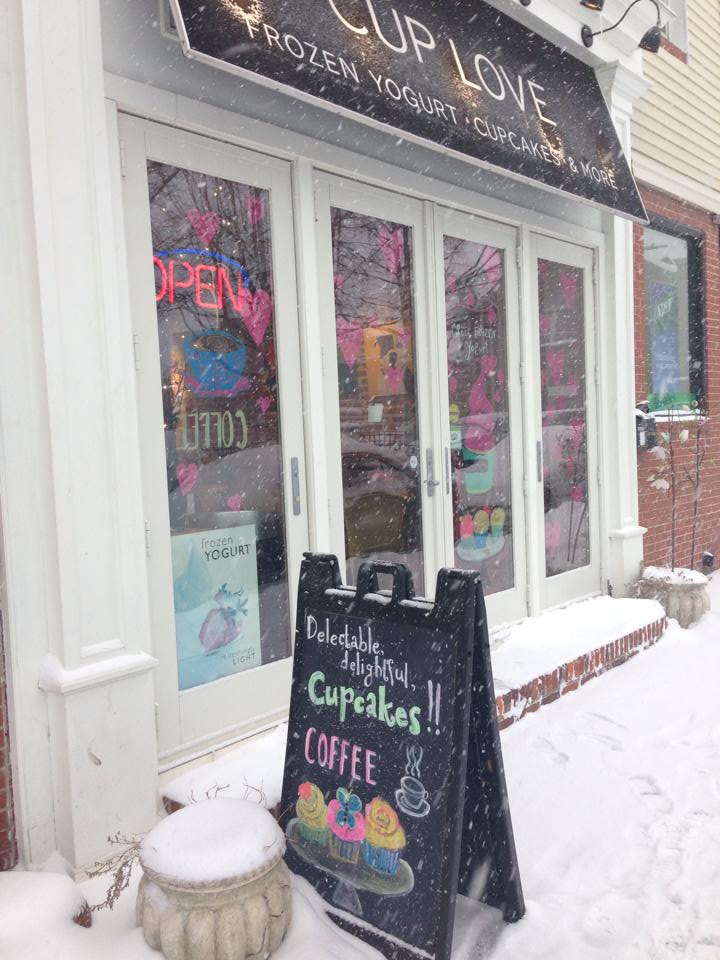 CUP LOVE
FROZEN YOGURT · CUPCAKES & MORE
OPEN
COFFEE
frozen
YOGURT
LIGHT
Yogurt
Delectable,
delightful,
Cupcakes!!
COFFEE